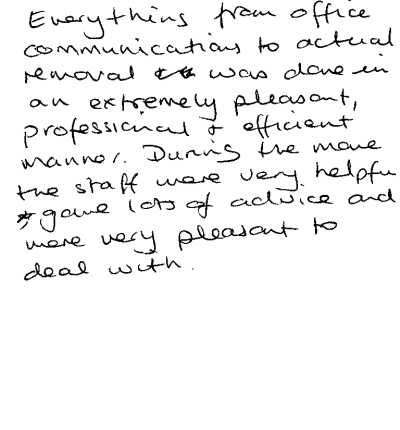 Everything from office
communications to actual
removal was done in
an extremely pleasant,
professional & efficient
manner. During the move
the staff were very helpfu
gave lots of advice and
were very pleasant to
deal with.